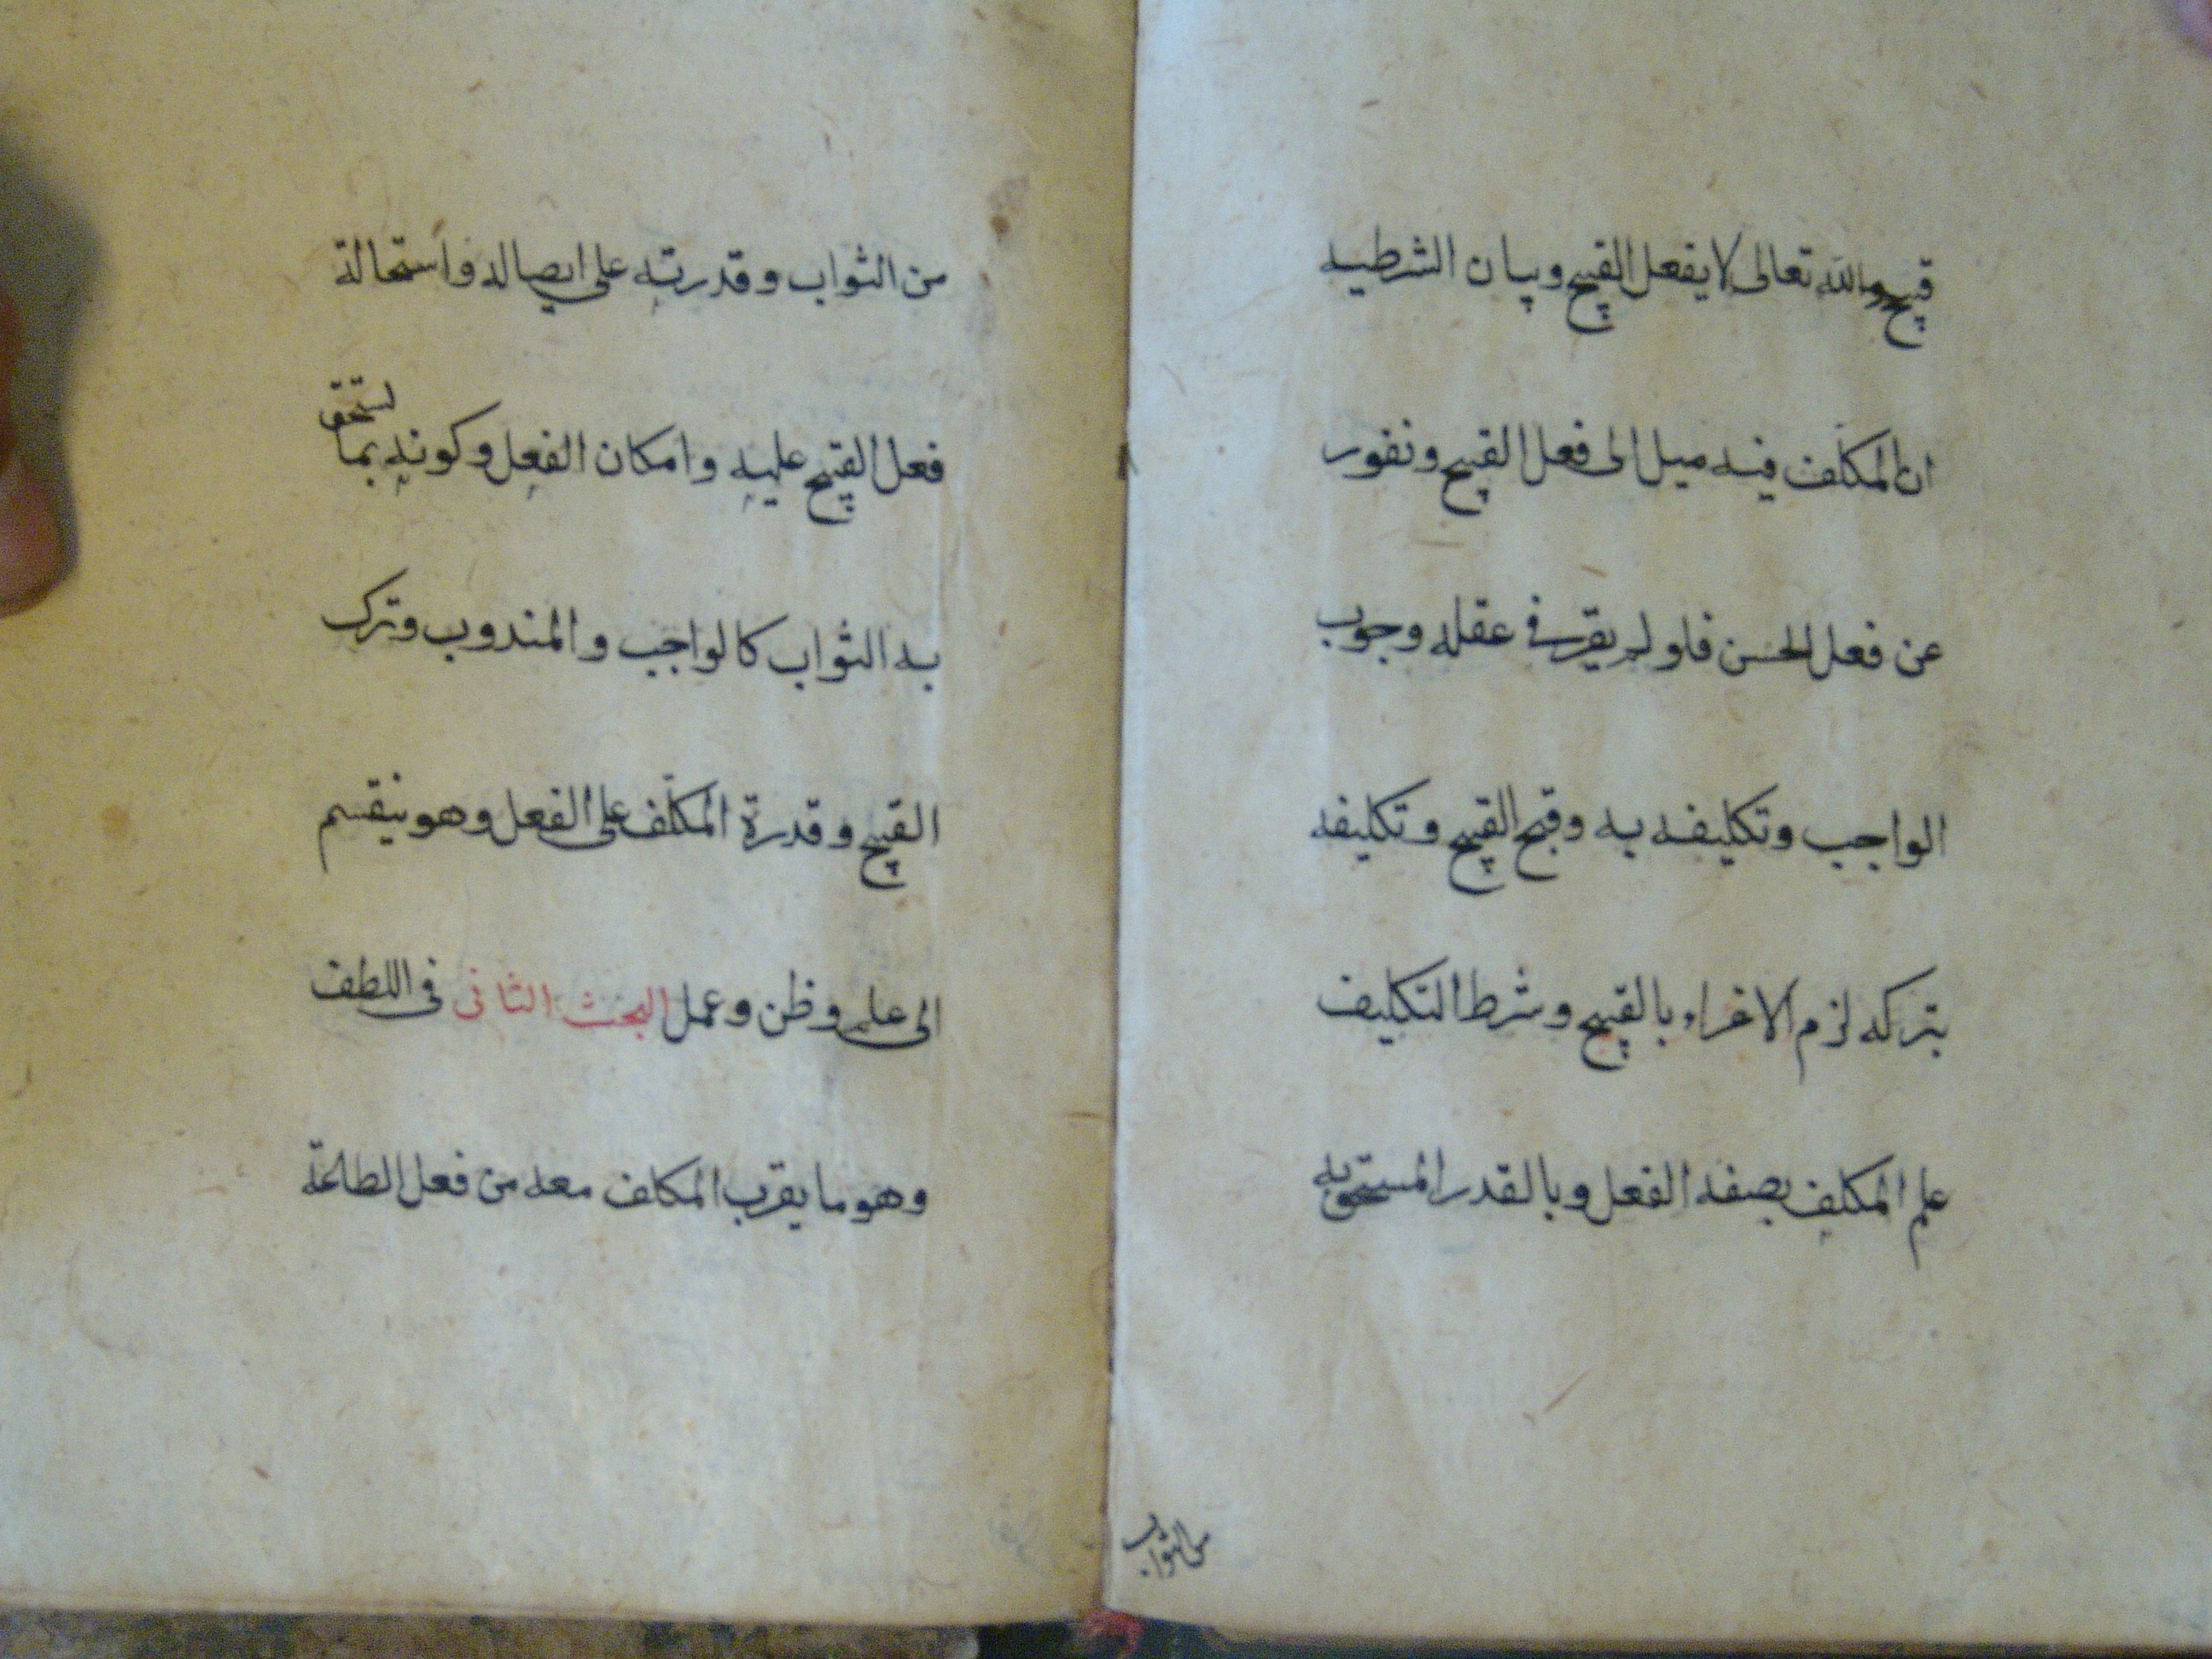 قبيح والله تعالى لا يفعل القبيح وبيان الشرطيه
ان المكلف فيه ميل الى فعل القبيح ونفور
عن فعل الحسن فلو لم يقرر في عقله وجوب
الواجب وتكليفه به وقبح القبيح وتكليفه
بتركه لزم الاغراء بالقبيح وشرط التكليف
علم المكلف بصفه الفعل وبالقدر المستحق به
من الثواب
من الثواب وقدرته على ايصاله واستحالة
فعل القبيح عليه وامكان الفعل وكونه بما يستحق
به الثواب كالواجب والمندوب وترك
القبيح وقدرة المكلف على الفعل وهو ينقسم
الى علم وظن وعمل البحث الثانى فى اللطف
وهو ما يقرب المكلف معه من فعل الطاعة